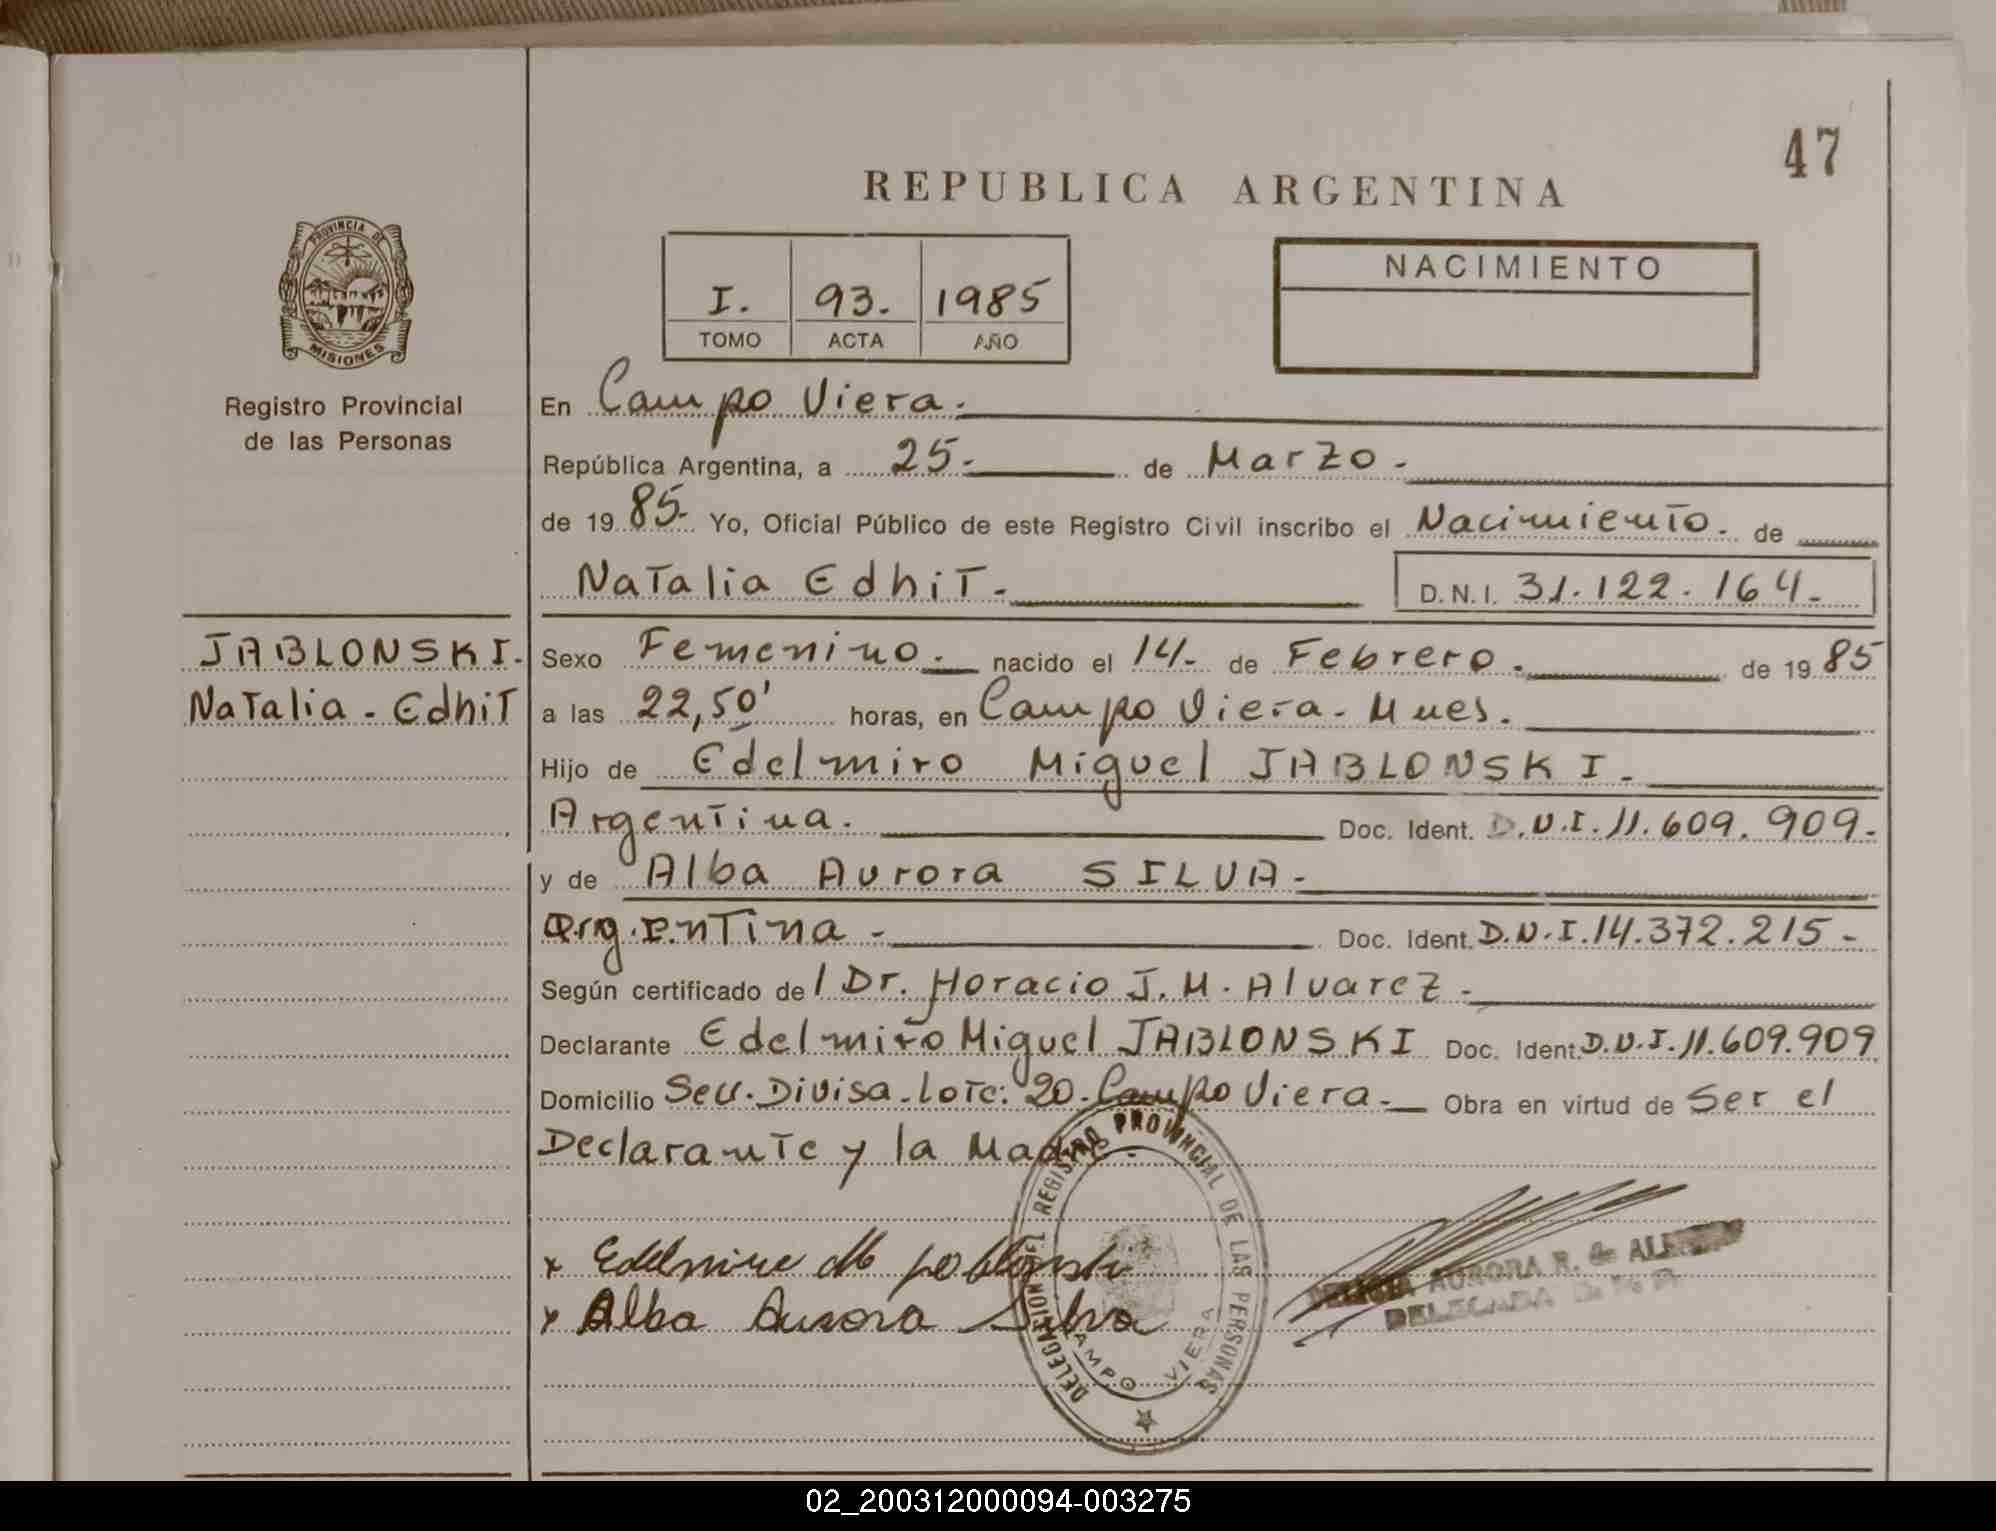 47
REPUBLICA ARGENTINA
PROVINCIA DE
MISIONES
Registro Provincial
de las Personas
I. 93. 1985
TOMO ACTA AÑO
NACIMIENTO
En Campo Viera.
República Argentina, a 25- de Marzo.-
de 19 85- Yo, Oficial Público de este Registro Civil inscribo el Nacimiento. de
Natalia Edhit.- D.N.I. 31.122.164.-
JABLONSKI.
Natalia - Edhit
Sexo Femenino.- nacido el 14.- de Febrero.- de 19 85
a las 22,50' horas, en Campo Viera. Mnes.
Hijo de Edelmiro Miguel JABLONSKI.-
Argentina. Doc. Ident. D.N.I. 11.609.909.-
y de Alba Aurora SILVA.-
Argentina.- Doc. Ident. D.N.I. 14.372.215-
Según certificado de l Dr. Horacio J. M. Alvarez.-
Declarante Edelmiro Miguel JABLONSKI Doc. Ident. D.N.I. 11.609.909
Domicilio Secc. Divisa. Lote: 20. Campo Viera.- Obra en virtud de Ser el
Declarante y la Madre.-
x Edelmiro M Jablonski
x Alba Aurora Silva
DELEGACION REGISTRO PROVINCIAL DE LAS PERSONAS
CAMPO VIERA
AURORA R. de
DELEGADA
02_200312000094-003275